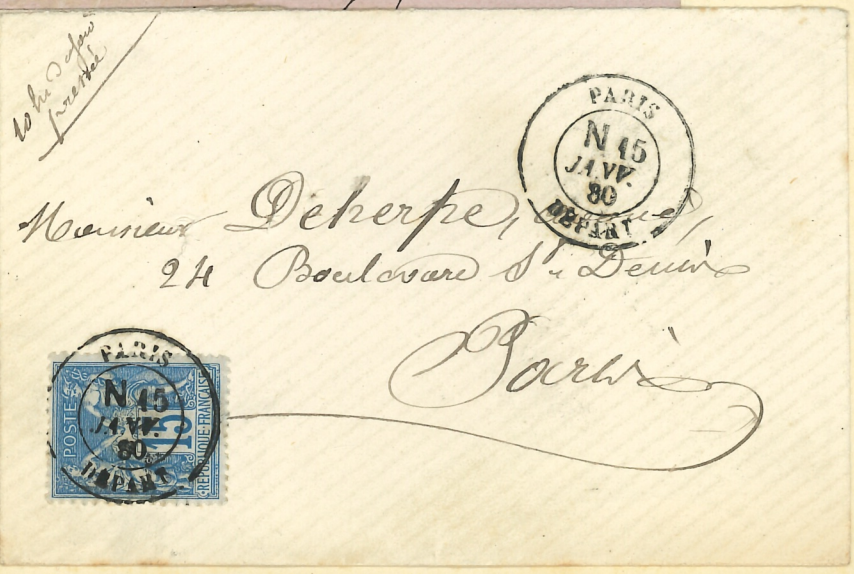 pressée
PARIS
N 15
JANV.
80
DÉPART
Monsieur Deherpe,
24 Boulevard St. Denis
Paris
PARIS
N 15
JANV.
80
DÉPART
POSTE
15
REPUBLIQUE FRANÇAISE